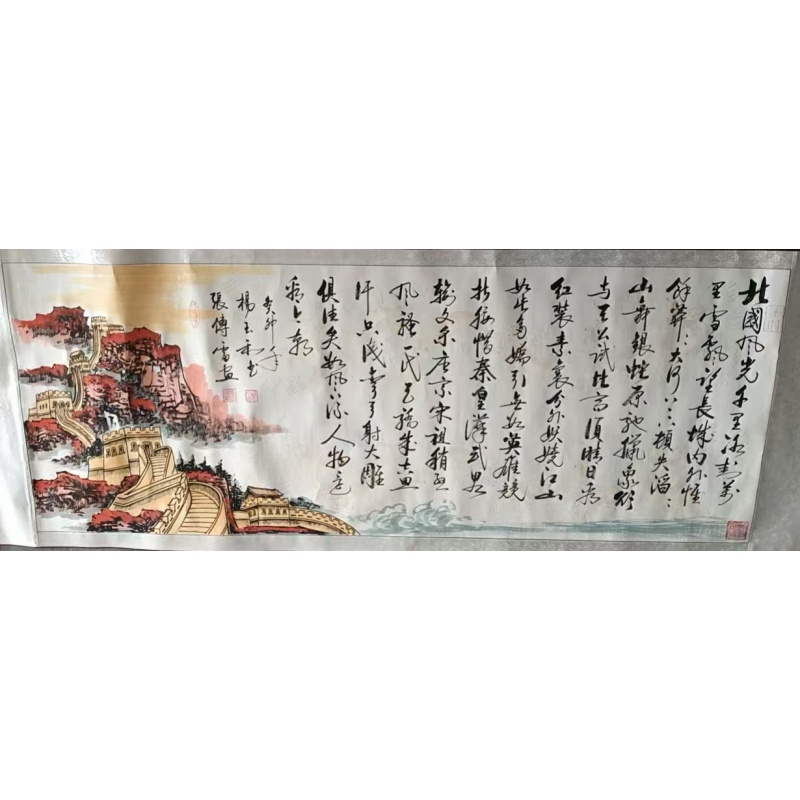 北國风光千里冰封萬
里雪飄望長城内外惟
餘莽〻大河上下頓失滔〻
山舞銀蛇原馳蠟象欲
与天公試比高須晴日看
红装素裹分外妖娆江山
如此多嬌引無數英雄競
折腰惜秦皇漢武略
輸文采唐宗宋祖稍遜
风骚一代天驕成吉思
汗只識彎弓射大雕
俱往矣數风流人物還
看今朝
癸卯年
楊玉書
張傳画